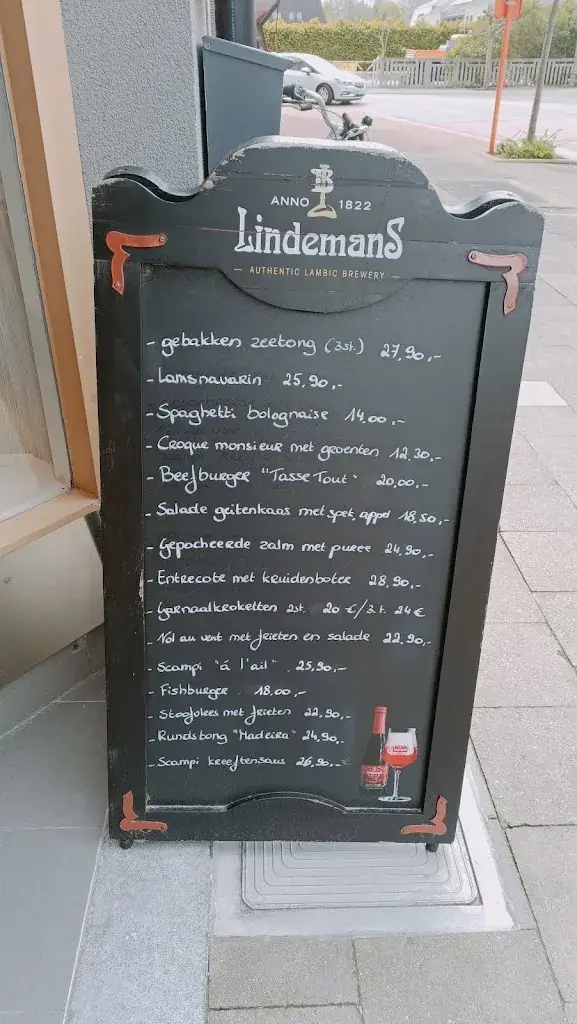 ANNO 1822
Lindemans
AUTHENTIC LAMBIC BREWERY
- gebakken zeetong (3st.) 27,90,-
- Lamsnavarin 25,90,-
- Spaghetti bolognaise 14.00,-
- Croque monsieur met groenten 12,30,-
- Beefburger "Tasse Tout" 20,00,-
- Salade geitenkaas met spek, appel 18,50,-
- Gepocheerde zalm met puree 24,90,-
- Entrecote met kruidenboter 28,90,-
- Garnaalkroketten 2st. 20 €/3.t. 24 €
- Vol au vent met frieten en salade 22,90,-
- Scampi "à l'ail" 25,90,-
- Fishburger 18,00,-
- Stoofvlees met frieten 22,90,-
- Rundstong "Madeira" 24,90,-
- Scampi kreeftensaus 26,90,-